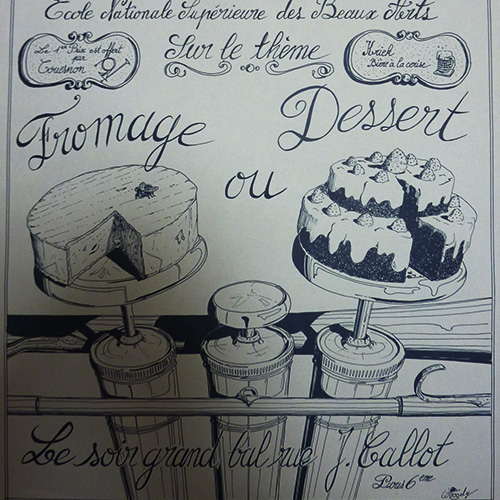 Ecole Nationale Supérieure des Beaux Arts
Le 1er Prix est offert
par
Couesnon
Sur le thème
Kriek
Bière à la cerise
Fromage
ou
Dessert
Le soir grand bal rue J. Callot
Paris 6eme